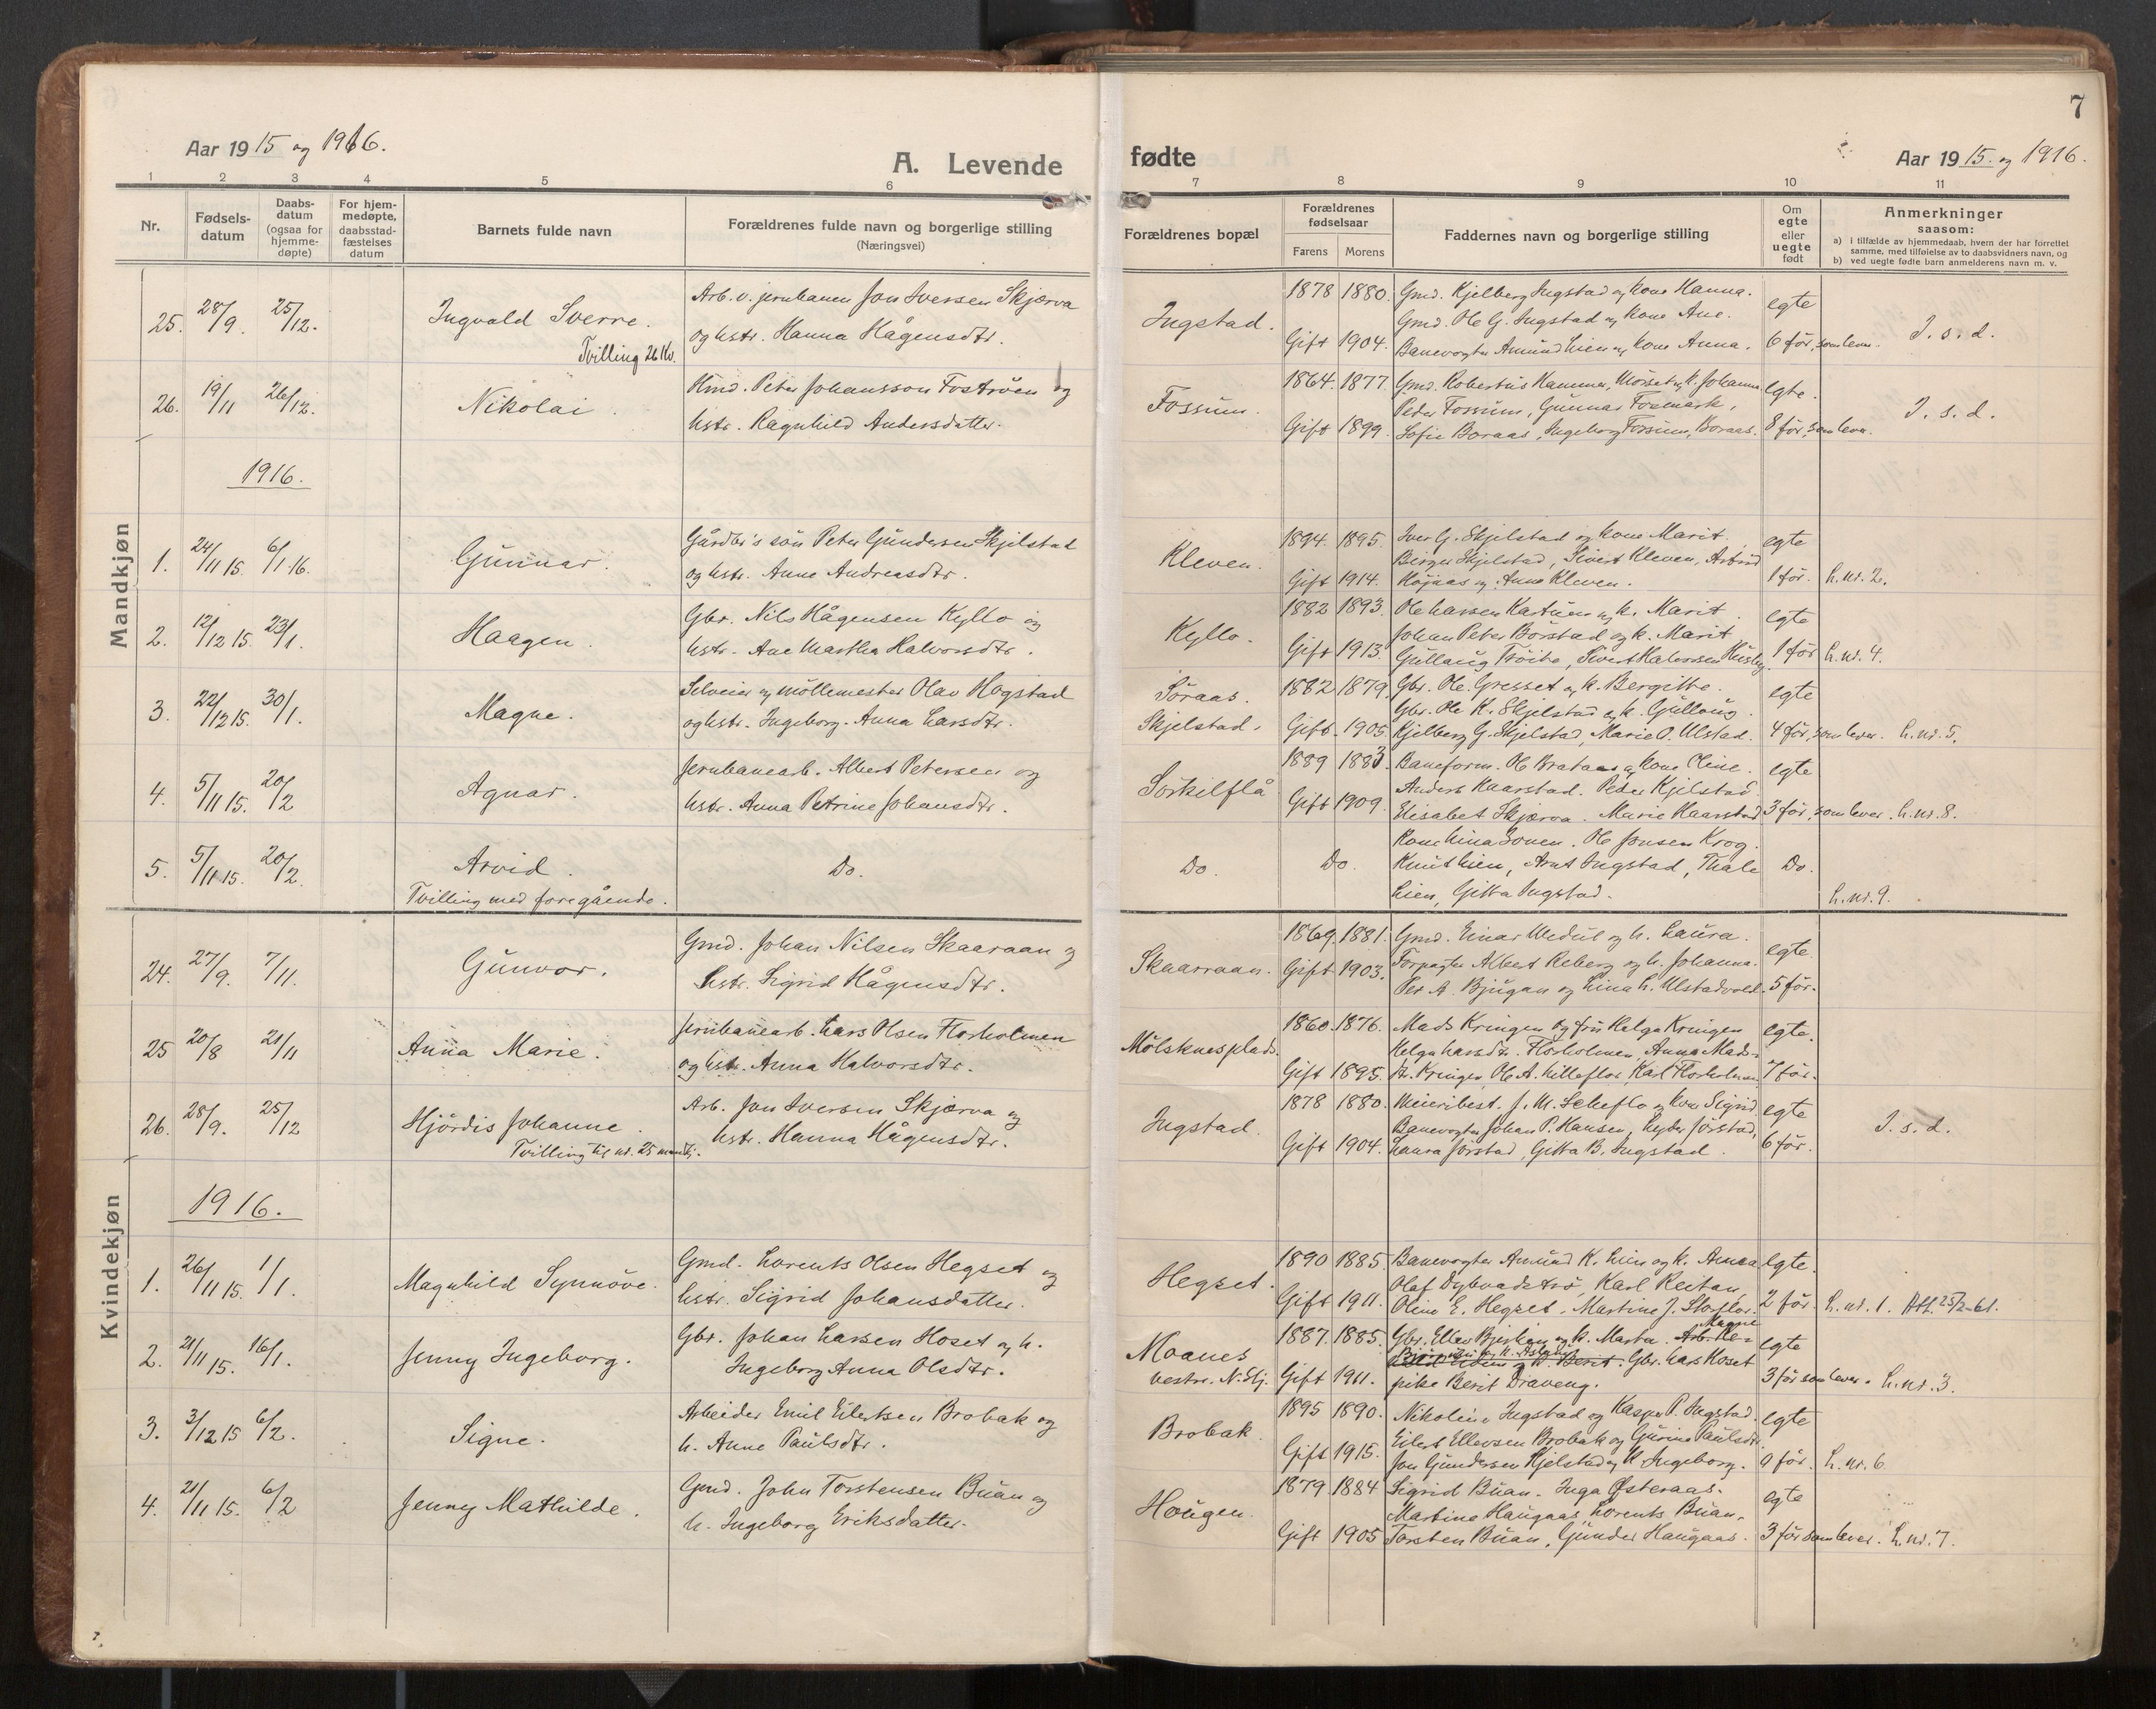 7
Aar 19 15 og 1916.
A. Levende
fødte
Aar 19 15. og 1916.
1 2 3 4 5 6 7 8 9 10 11
Nr.
Fødsels-
datum
Daabs-
datum
(ogsaa for
hjemme-
døpte)
For hjem-
medøpte,
daabsstad-
fæstelses
datum
Barnets fulde navn
Forældrenes fulde navn og borgerlige stilling
(Næringsvei)
Forældrenes bopæl
Forældrenes
fødselsaar
Farens Morens
Faddernes navn og borgerlige stilling
Om
egte
eller
uegte
født
Anmerkninger
saasom:
a) i tilfælde av hjemmedaab, hvem der har forrettet
samme, med tilføielse av to daabsvidners navn, og
b) ved uegte fødte barn anmelderens navn m. v.
Mandkjøn
25. 28/9. 25/12. Ingvald Sverre.
Tvilling 26 Kv.
Arb. v. jernbanen Jon Iversen Skjærva
og hstr. Hanna Hågensdtr.
Ingstad.
1878 1880.
Gift 1904.
Gmd. Kjelberg Ingstad og kone Hanna.
Gmd. Ole G. Ingstad og kone Ane.
Banevogter Amund Lien og kone Anna.
egte
6 før, som lever.
I. s. d.
26. 19/11 26/12. Nikolai.
Kmd. Peter Johansson Fostrøen og
hstr. Ragnhild Andersdatter.
Fossum.
1864. 1877.
Gift 1899.
Gmd. Robertus Hammer, Morset og k. Johanna
Peder Fossum, Gunnar Fosmark,
Sofie Boraas, Ingeborg Fossum, Boraas.
egte.
8 før, som lever.
I. s. d.
1916.
1. 24/11 15. 6/1.16. Gunnar.
Gårdbr's søn Peter Gundersen Skjelstad
og hstr. Anne Andreasdtr.
Kleven.
1894. 1895.
Gift 1914.
Iver G. Skjelstad og kone Marit.
Birger Skjelstad, Sivert Kleven, Astrid
Højaas og Anna Kleven.
egte
1 før.
L. nr. 2.
2. 12/12 15. 23/1. Haagen.
Gbr. Nils Hågensen Kyllo og
hstr. Ane Martha Halvorsdtr.
Kyllo.
1882 1893.
Gift 1913.
Ole Larsen Kartum og k. Marit.
Johan Peter Børstad og k. Marit
Gullaug Trøite, Sivert Halvorsen Husby.
egte
1 før
L. nr. 4.
3. 22/12 15. 30/1. Magne.
Selveier og møllemester Olav Hogstad
og hstr. Ingeborg-Anna Larsdtr.
Søraas.
Skjelstad.
1882 1879
Gift. 1905
Gbr. Ole Gresset og k. Bergitte.
Gbr. Ole K. Skjelstad og k. Gullaug.
Kjelberg G. Skjelstad, Marie O. Ulstad.
egte
4 før, som lever. L. nr. 5.
4. 5/11 15. 20/2 Agnar.
Jernbanearb. Albert Petersen og
hstr. Anna Petrine Johansdtr.
Sørkilflå
1889 1883
Gift 1909.
Baneform. Ole Brataas og kone Oline.
Anders Haarstad. Peder Kjelstad
Elisabet Skjærva. Marie Haarstad
egte
3 før, som lever. L. nr. 8.
5. 5/11 15. 20/2. Arvid.
Tvilling med foregående.
Do.
Do.
Do.
Kone Lina Sonen. Ole Jonsen Krog.
Knut Lien, Arnt Ingstad, Thale
Lien, Gitta Ingstad.
Do.
L. nr. 9.
Kvindekjøn
24. 27/9. 7/11. Gunvor.
Gmd. Johan Nilsen Skaaraan og
hstr. Sigrid Hågensdtr.
Skaarraan.
1869. 1881.
Gift 1903.
Gmd. Einar Wedul og h. Laura.
Forpagter Albert Reberg og h. Johanna.
Per A. Bjugan og Lina L. Ulstadvold.
egte.
5 før.
25 20/8 21/11 Anna Marie.
Jernbanearb. Lars Olsen Florholmen
og hstr. Anna Halvorsdtr.
Mølsknesplads.
1860. 1876.
Gift 1895.
Mads Kringen og fru Helga Kringen
Helga Larsdtr. Florholmen, Anna Mads-
dt. Kringen, Ole A. Lilleflor, Karl Florholmen
egte.
7 før.
26. 28/9. 25/12 Hjørdis Johanne.
Tvilling til nr. 25 mandkj.
Arb. Jon Iversen Skjærva og
hstr. Hanna Hågensdtr.
Ingstad.
1878 1880.
Gift 1904.
Meieribest. J. M. Scheflo og kone Sigrid
Banevogter Johan P. Hansen, Lyder Jørstad,
Laura Jørstad, Gitta B. Ingstad.
egte
6 før.
I. s. d.
1916.
1. 26/11 15. 1/1. Magnhild Synnøve.
Gmd. Lorents Olsen Hegset og
hstr. Sigrid Johansdatter.
Hegset.
1890 1885.
Gift 1911.
Banevogter Amund K. Lien og k. Anna
Olaf Dybvadstrø, Karl Reitan,
Oline E. Hegset. Martine J. Storflor.
egte.
2 før.
L. nr. 1. Att. 25/2-61.
2. 21/11 15. 16/1. Jenny Ingeborg.
Gbr. Johan Larsen Hoset og h.
Ingeborg Anna Olsdtr.
Moanes
vestre. N. Skj.
1887. 1885.
Gift 1911.
Magne
Gbr. Ellev Bjerkan og k. Marta.
Gbr. Lars Hoset
pike Berit Draveng.
egte
3 før som lever. L. nr. 3.
3. 3/12 15 6/2. Signe.
Arbeider Emil Eilertsen Brobak og
h. Anne Paulsdtr.
Brobak.
1895 1890.
Gift 1915.
Nikoline Ingstad og Kasper P. Ingstad.
Eilert Ellevsen Brobak og Gurine Paulsdtr.
Jon Gundersen Kjelstad og K. Ingeborg.
egte
0 før. L. nr. 6.
4. 21/11 15. 6/2 Jenny Mathilde.
Gmd. John Torstensen Buan og
h. Ingeborg Eriksdatter.
Hougen.
1879 1884
Gift 1905
Sigrid Buan. Inga Østeraas.
Martine Haugaas, Lorents Buan.
Torsten Buan, Gunder Haugaas.
egte
3 før som lever. L. nr. 7.